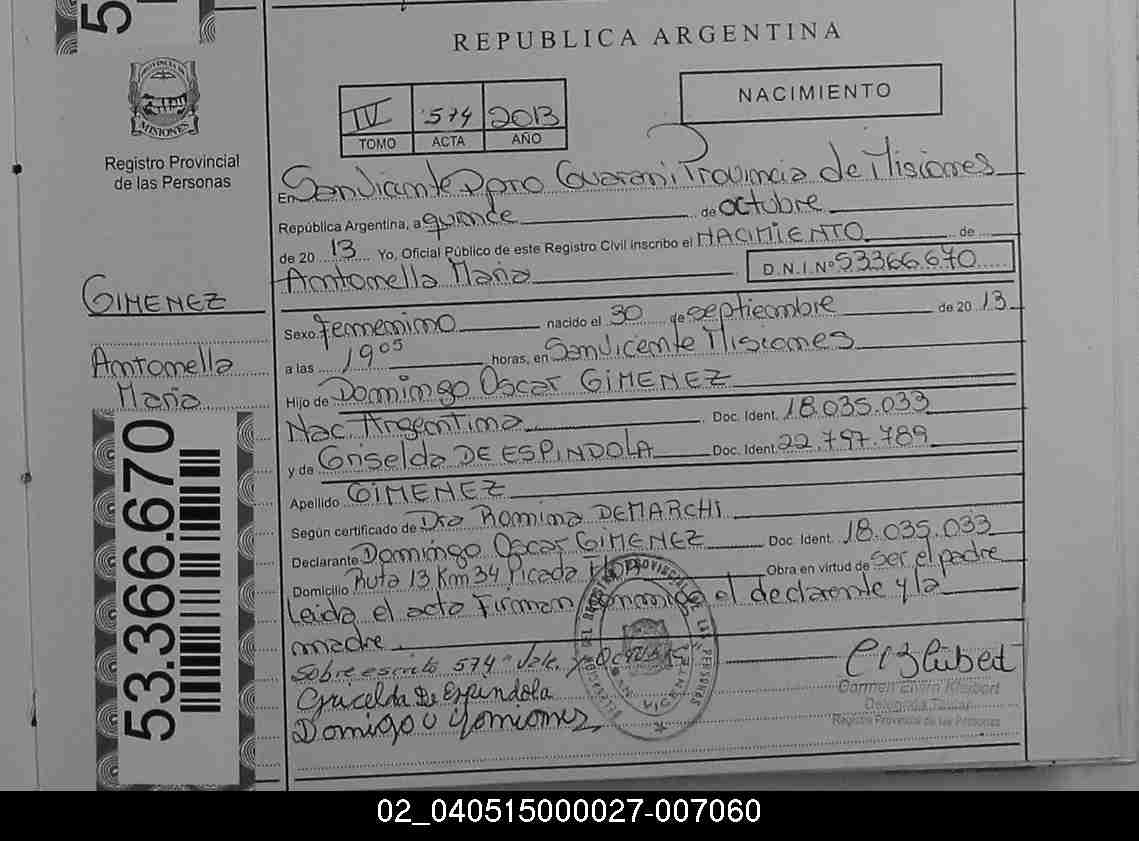 REPUBLICA ARGENTINA
PROVINCIA DE
MISIONES
Registro Provincial
de las Personas
IV 574 2013
TOMO ACTA AÑO
NACIMIENTO
En San Vicente Dpto Guarani Provincia de Misiones
República Argentina, a quince de octubre
de 20 13 Yo, Oficial Público de este Registro Civil inscribo el NACIMIENTO de
Antonella Maria D.N.I.Nº 53366.670
GIMENEZ
Antonella
Maria
53.366.670
Sexo femenino nacido el 30 de septiembre de 20 13
a las 19 05 horas, en San Vicente Misiones
Hijo de Domingo Oscar GIMENEZ
Nac. Argentina Doc. Ident. 18.035.033
y de Griselda DE ESPINDOLA Doc. Ident. 22.797.789
Apellido GIMENEZ
Según certificado de Dra Romina DEMARCHI
Declarante Domingo Oscar GIMENEZ Doc. Ident. 18.035.033
Domicilio Ruta 13 Km 34 Picada Obra en virtud de ser el padre
Leida el acta Firman conmigo el declarante y la
madre
Sobre escrito 574" Vale.
Grucelda De Espindola
Domigo O
Carmen
Delegada Titular
Registro Provincial de las Personas
02_040515000027-007060